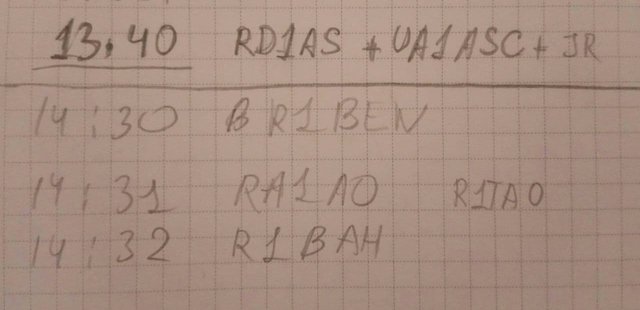 13.40 RD1AS + UA1ASC + JR
14:30 B R1BEN
14:31 RA1AO R1TAO
14:32 R1BAH